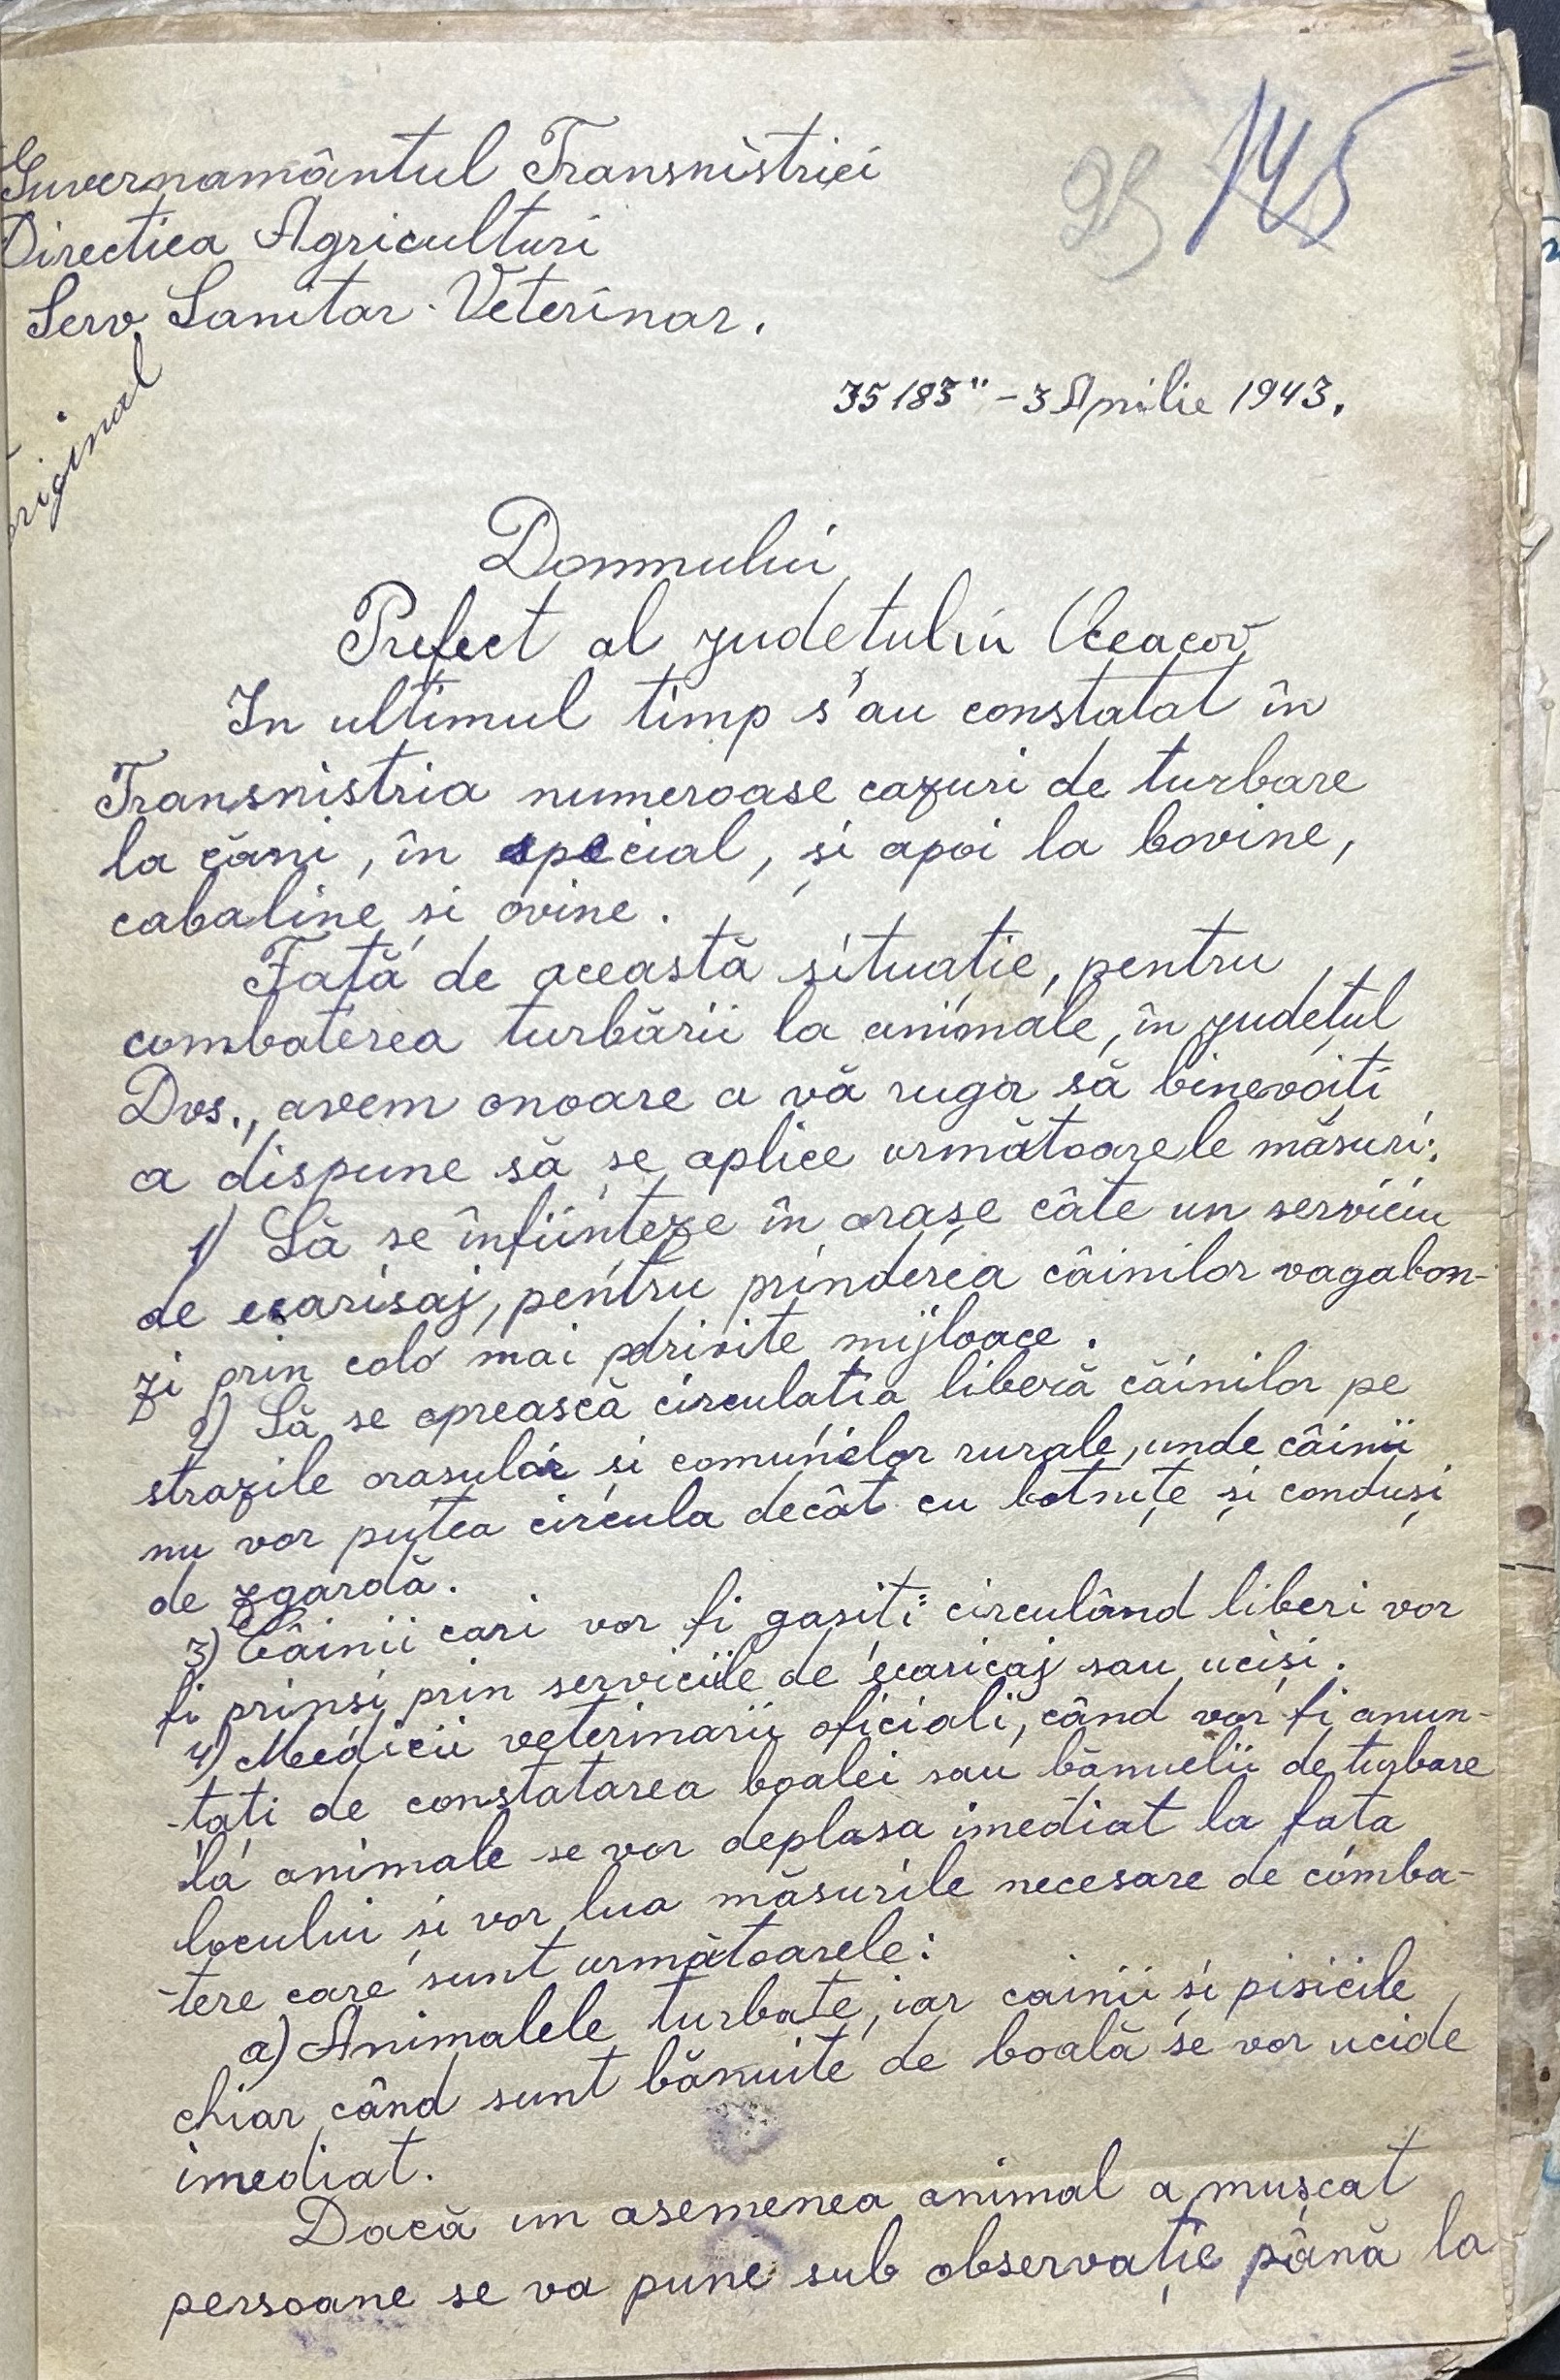 145
Guvernamântul Transnistriei
Directiea Agriculturi
Serv. Sanitar-Veterinar.
original
35183" - 3 Aprilie 1943.
Domnului
Prefect al judetului Oceacov
In ultimul timp s'au constatat în
Transnistria numeroase cazuri de turbare
la căni, în special, și apoi la bovine,
cabaline și ovine.
Față de această situație, pentru
combaterea turbării la animale, în județul
Dvs., avem onoare a vă ruga să binevoiți
a dispune să se aplice următoarele măsuri:
1) Să se înființeze în orașe câte un serviciu
de ecarisaj, pentru prinderea câinilor vagabon-
zi prin cele mai potrivite mijloace.
2) Să se oprească circulatia liberă câinilor pe
strazile orasulor și comunelor rurale, unde câinii
nu vor putea circula decât cu botnițe și conduși
de zgardă.
3) Câinii cari vor fi gasiți circulând liberi vor
fi prinși prin serviciile de ecaricaj sau uciși.
4) Medicii veterinarii oficiali, când vor fi anun-
-tați de constatarea boalei sau bănuelii de turbare
la animale se vor deplasa imediat la fata
locului și vor lua măsurile necesare de comba-
-tere care sunt următoarele:
a) Animalele turbate, iar cainii și pisicile
chiar când sunt bănuite de boală se vor ucide
imediat.
Dacă un asemenea animal a mușcat
persoane se va pune sub observație până la